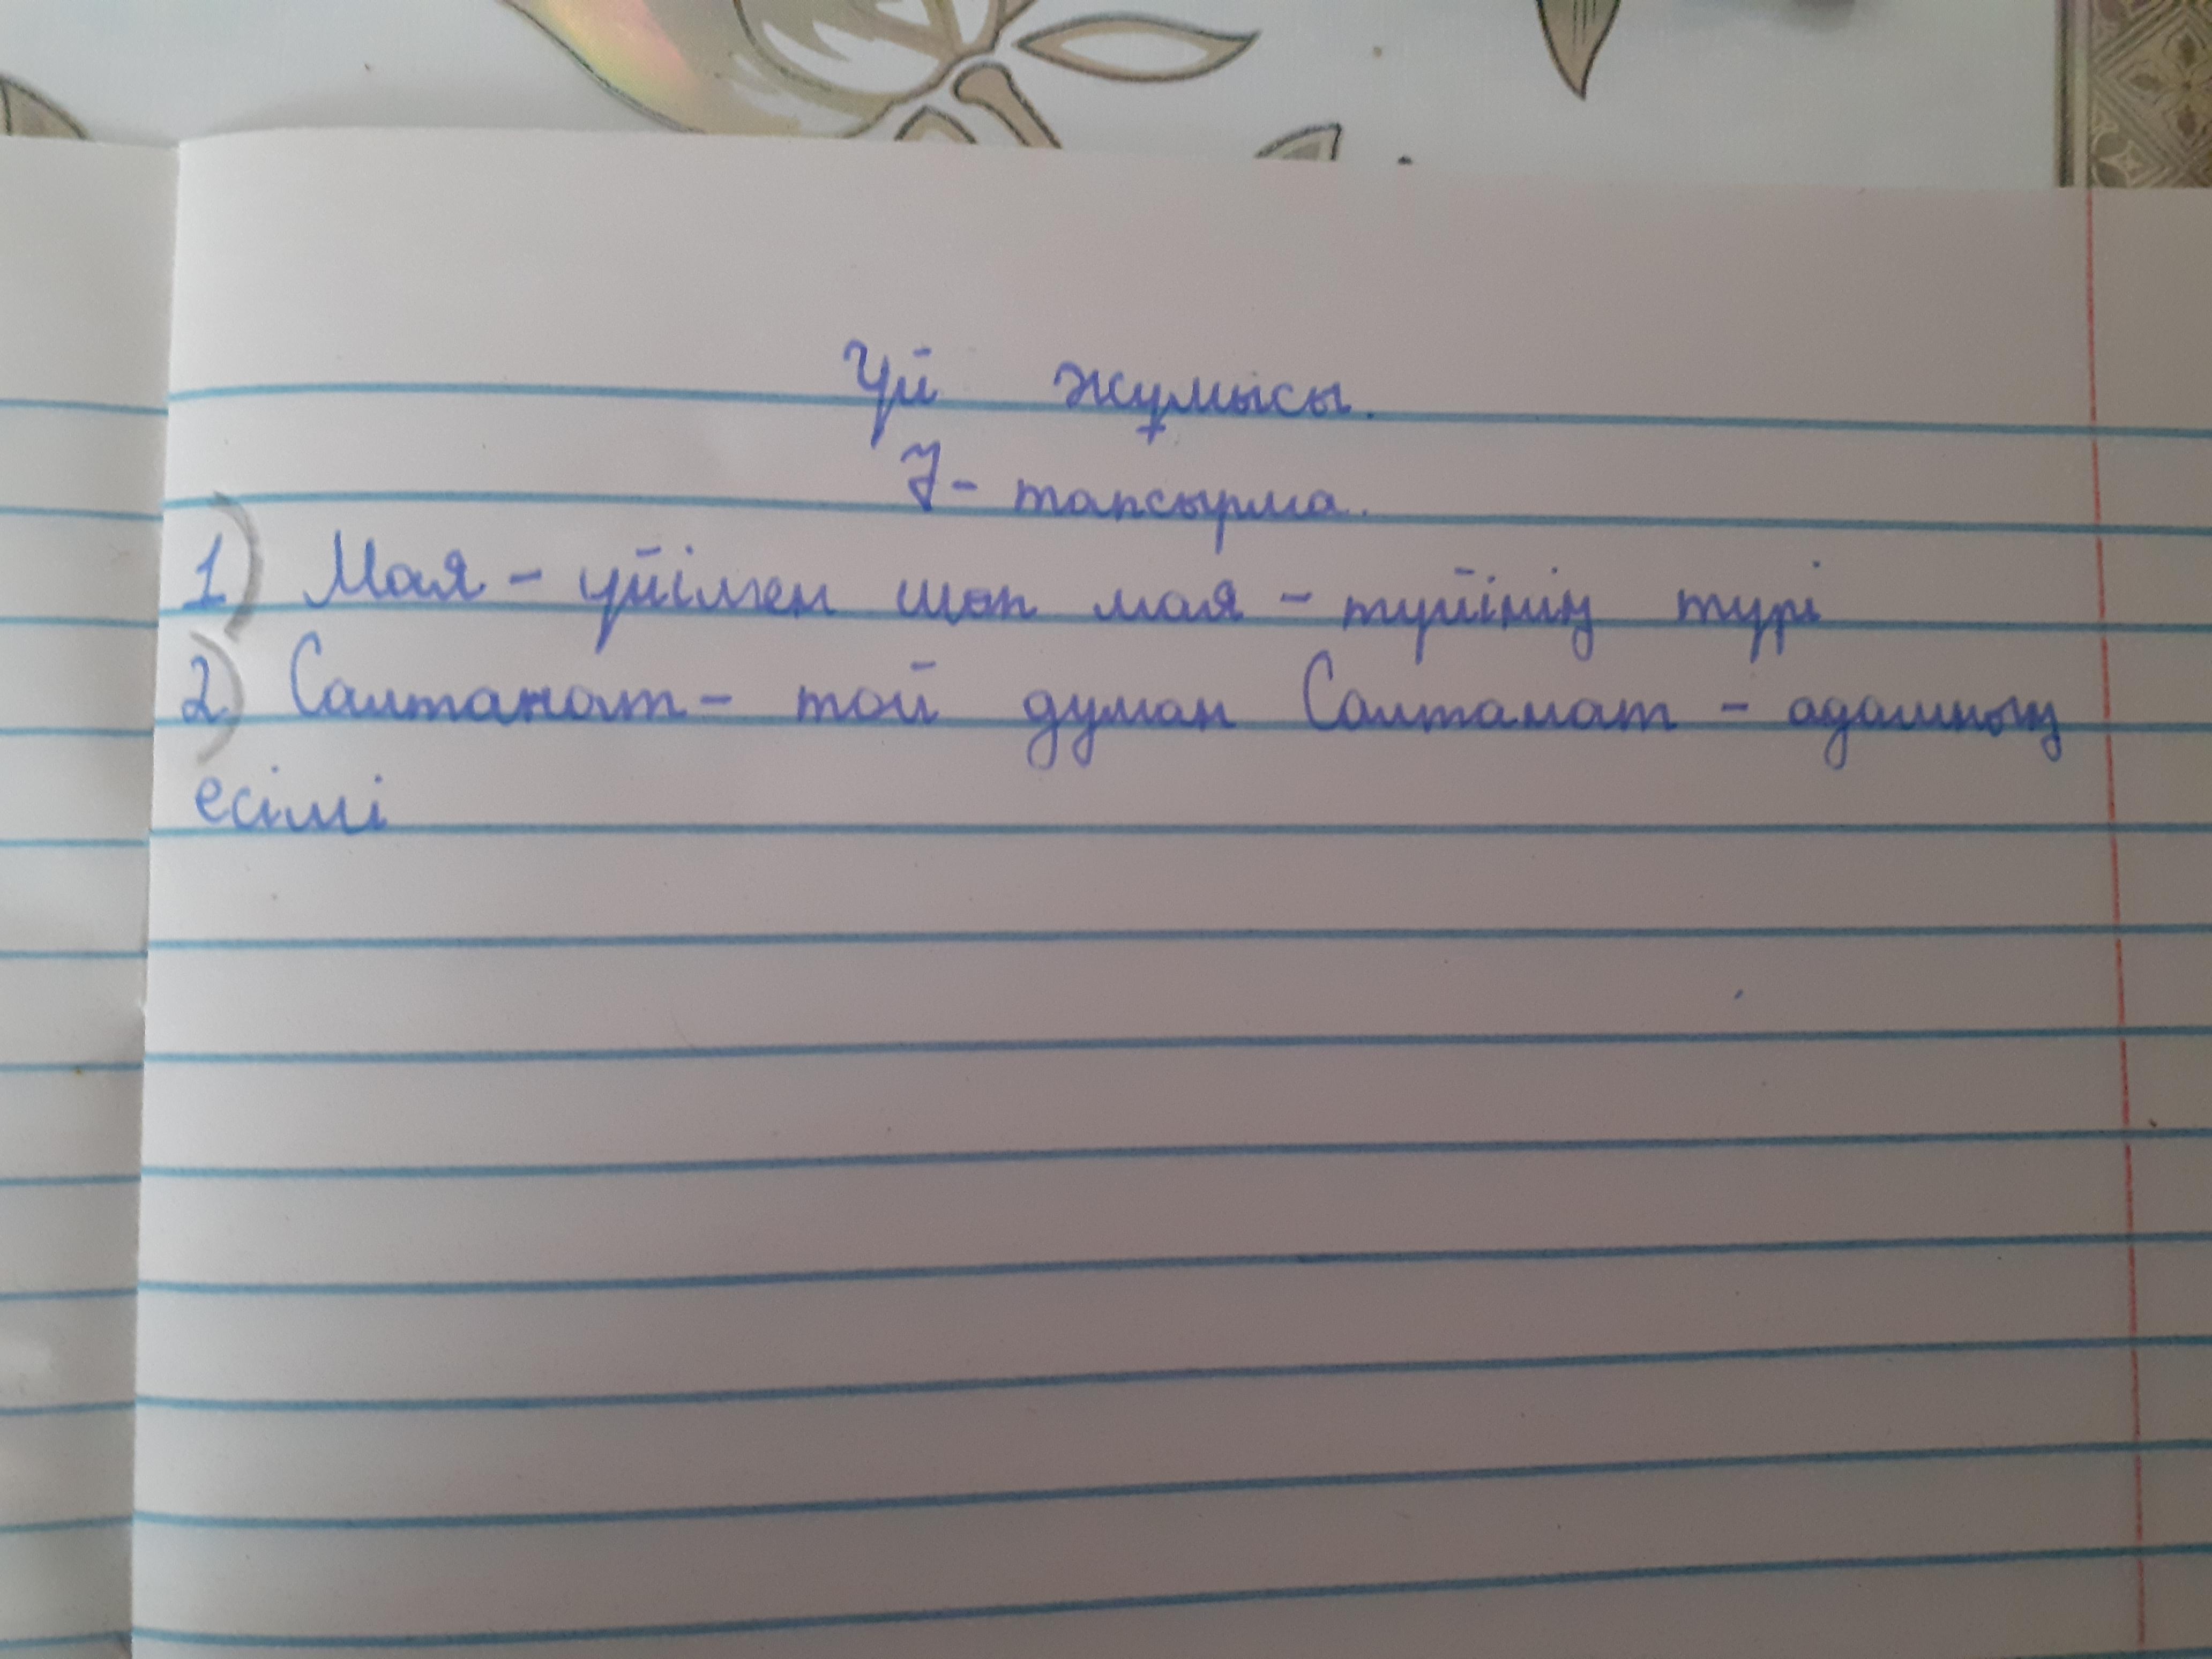 Үй жұмысы.
7- тапсырма.
1) Мая - үйілген шөп мая - түйінің түрі
2) Салтанат - той думан Салтанат - адамның
есімі